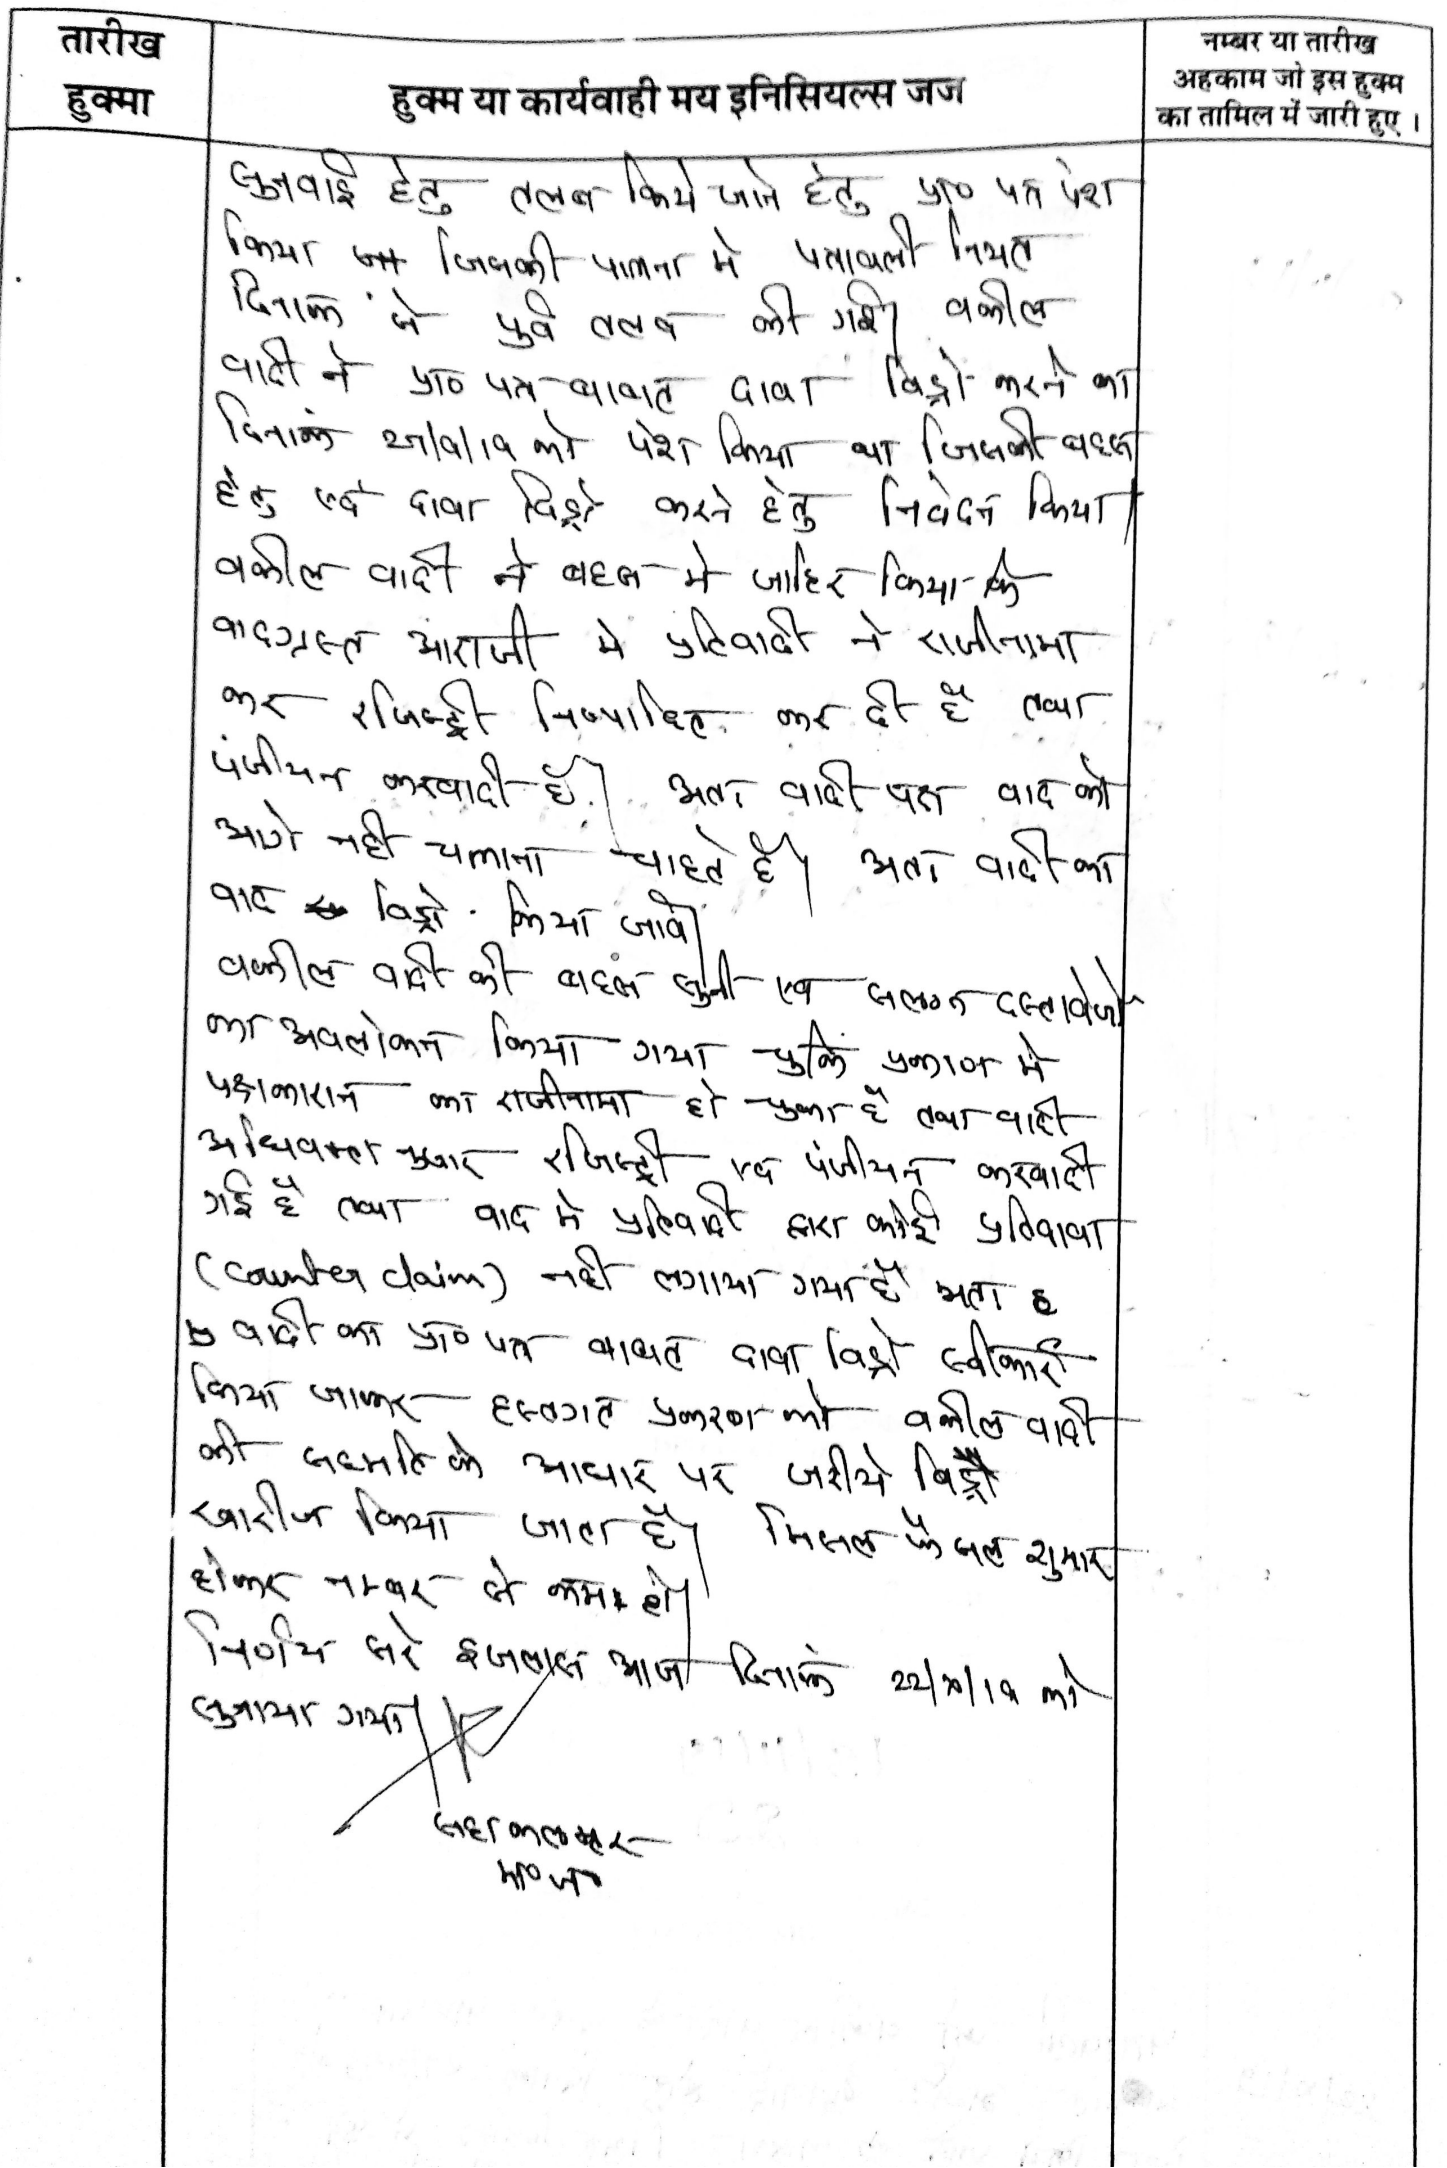 तारीख
हुक्मा
हुक्म या कार्यवाही मय इनिसियल्स जज
नम्बर या तारीख
अहकाम जो इस हुक्म
का तामिल में जारी हुए ।
सुनवाई हेतु तलब किये जाने हेतु प्रा० पत्र पेश
किया जिसकी पालना मे पत्रावली नियत
दिनांक से पुर्व तलब की गई। वकील
वादी ने प्रा० पत्र बाबत दावा विड्रो करने का
दिनांक को पेश किया था जिसकी बहस
हेतु एवं दावा विड्रो करने हेतु निवेदन किया।
वकील वादी ने बहस मे जाहिर किया कि
वादग्रस्त आराजी मे प्रतिवादी ने राजीनामा
कर रजिस्ट्री निष्पादित कर दी है तथा
पंजीयन करवादी है। अतः वादी पक्ष वाद को
आगे नही चलाना चाहते है। अतः वादी का
वाद विड्रो किया जावे।
वकील वादी की बहस सुनी एवं सलग्न दस्तावेजो
का अवलोकन किया गया चुकिं प्रकरण मे
पक्षकारान का राजीनामा हो चुका है तथा वादी
अधिवक्ता अनुसार रजिस्ट्री एवं पंजीयन करवादी
गई है तथा वाद मे प्रतिवादी द्वारा कोई प्रतिदावा
(counter claim) नही लगाया गया है अतः
वादी का प्रा० पत्र बाबत दावा विड्रो स्वीकार
किया जाकर हस्तगत प्रकरण को वकील वादी
की सहमति के आधार पर जरीये विड्रो
खारीज किया जाता है। मिसल फैसल शुमार
होकर नम्बर से कम हो।
निर्णय सरे इजलास आज दिनांक 22/10/19 को
सुनाया गया।
सहा कलक्टर